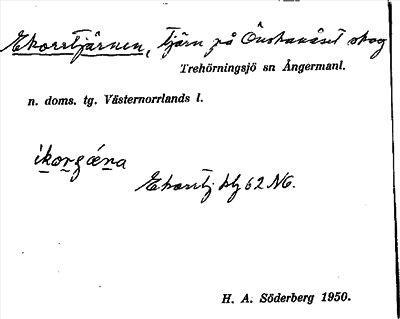 Ekorrtjärnen, tjärn på Önskanåset skog
Trehörningsjö sn Ångermanl.
n. doms. tg. Västernorrlands l.
ikorgæ̂na
Ekorrtj. bg 62 NG.
H. A. Söderberg 1950.